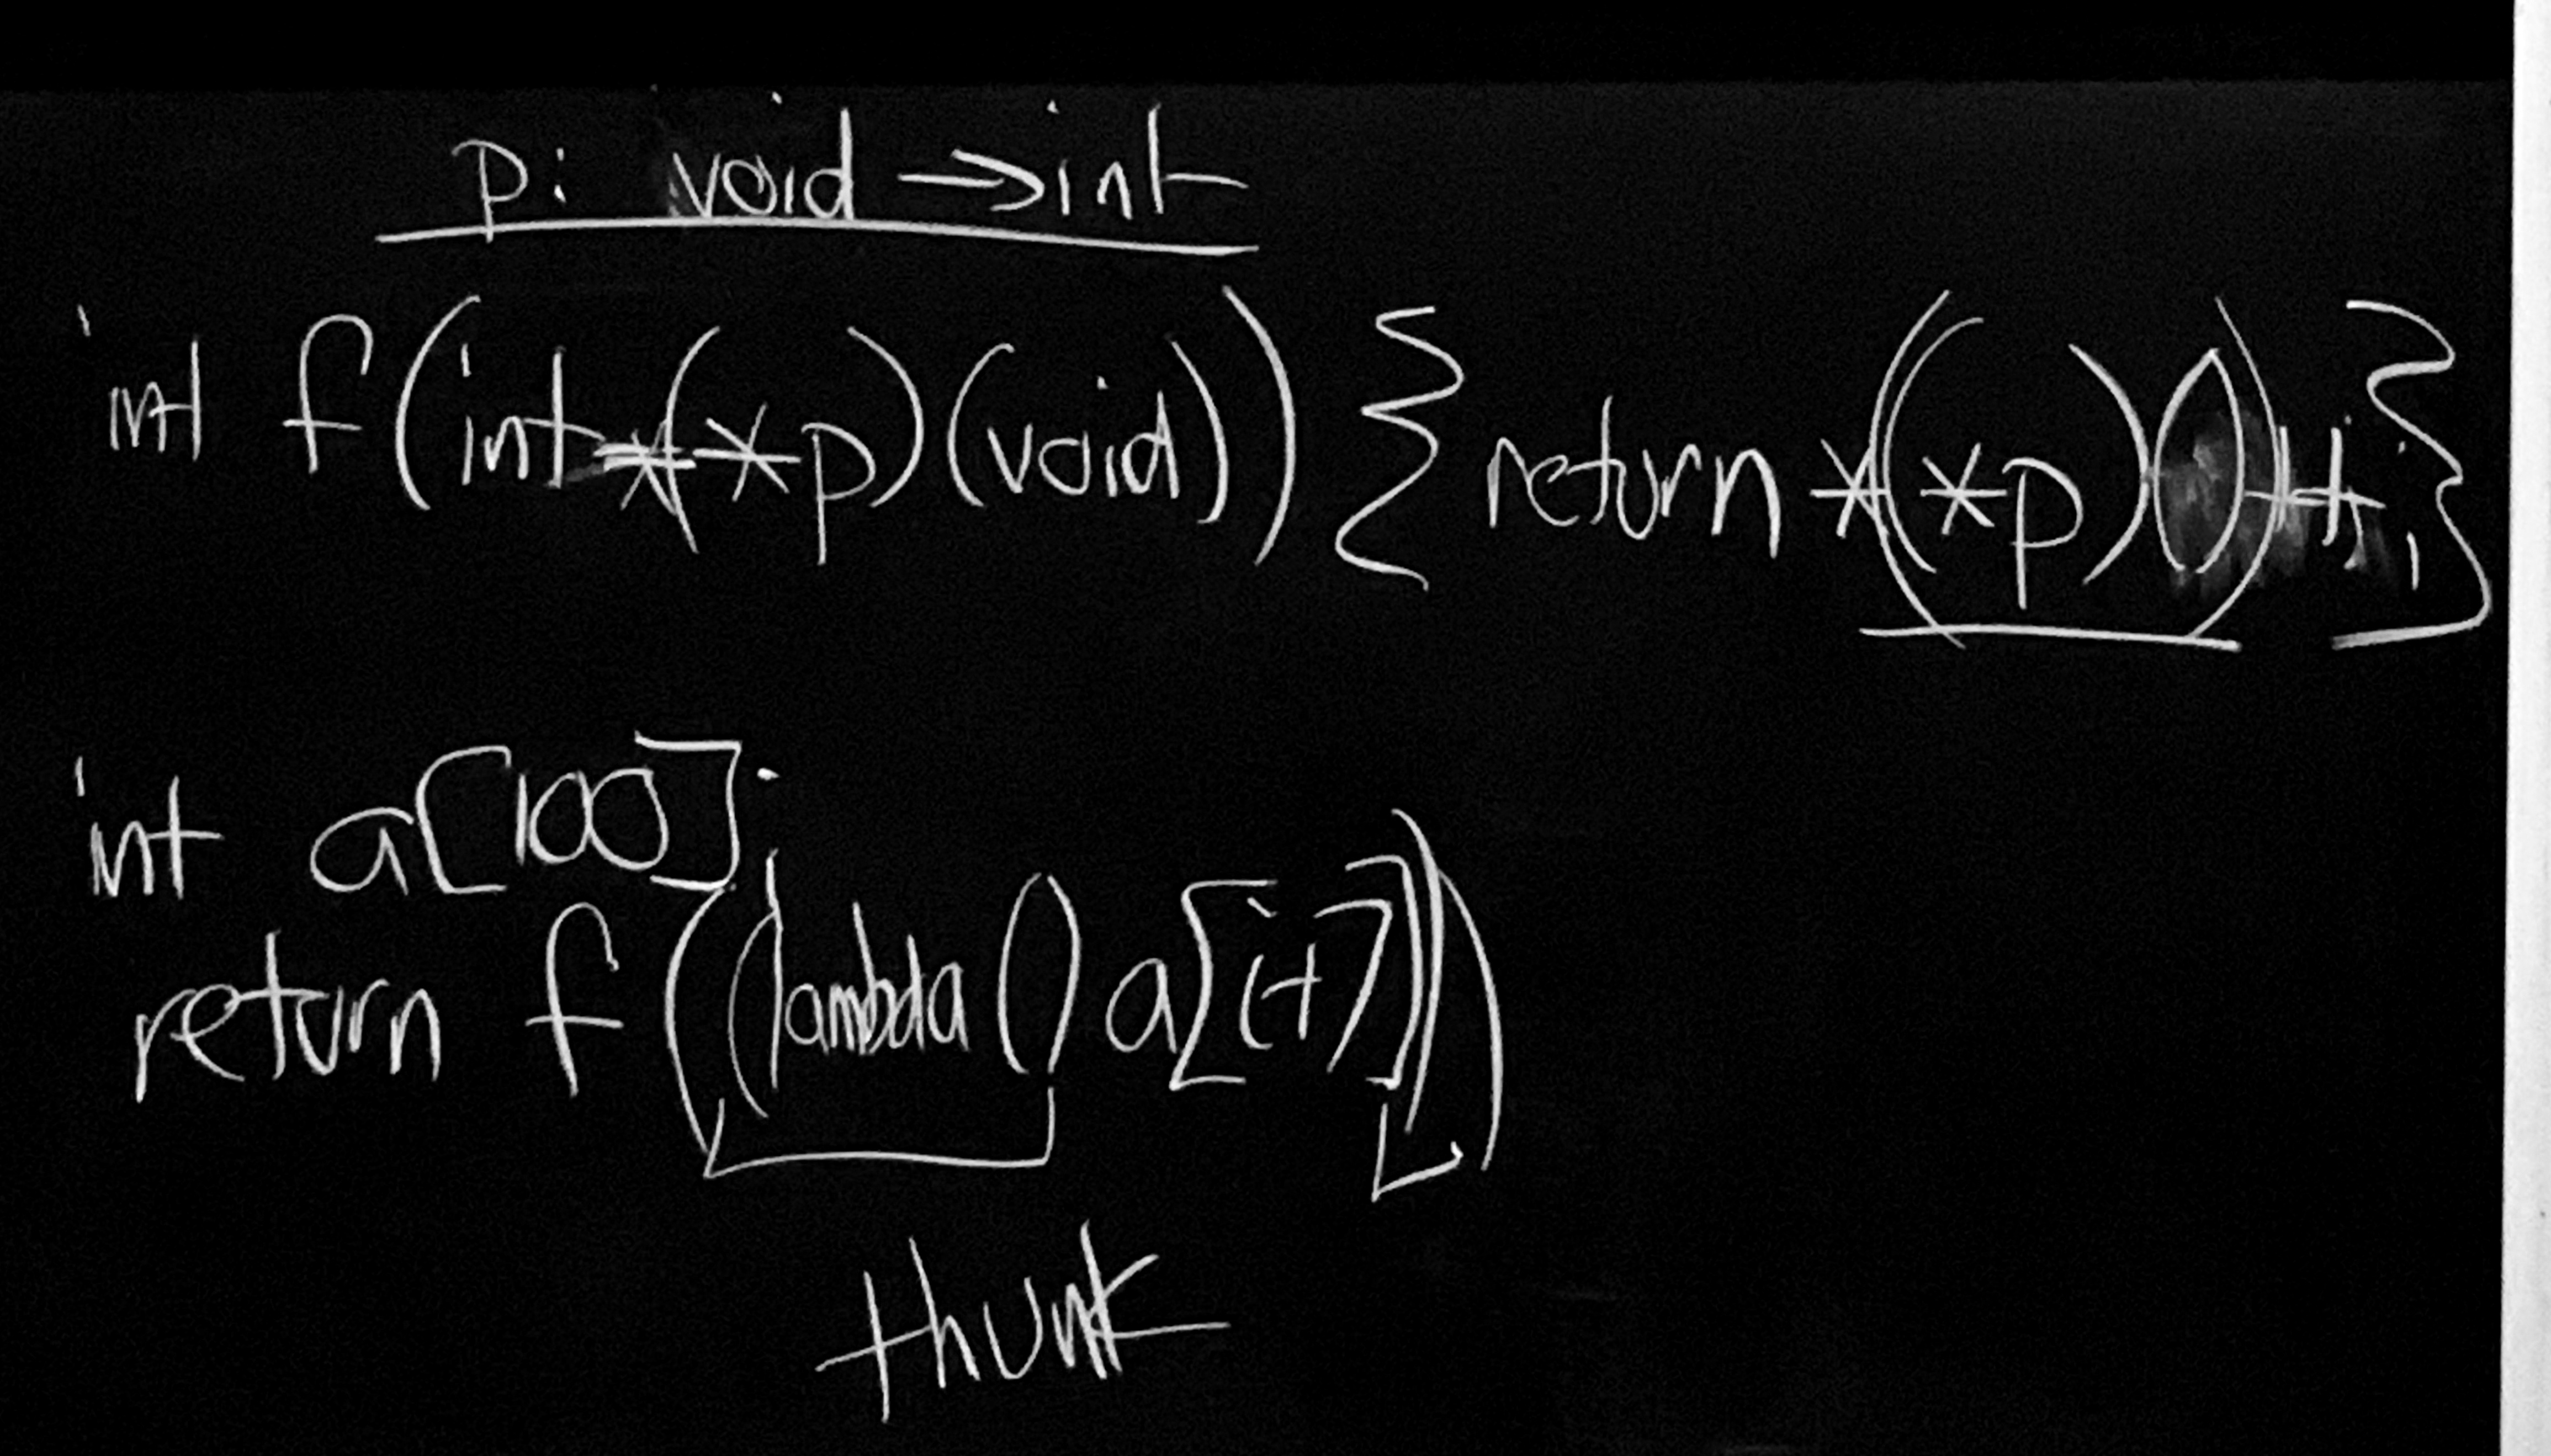 p: void →int
int f(int*(*p)(void)){return *((*p)())++;}
int a[100];
return f((lambda () a[i+7]))
thunk